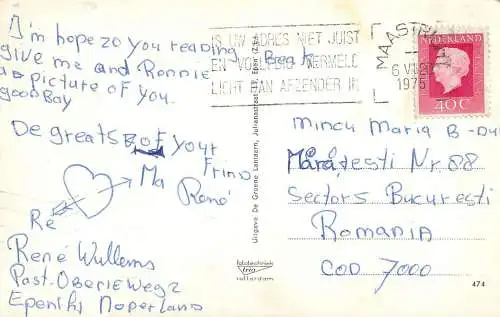 I'm hope zo you reading
give me and Ronnie Break
a picture of you.
good Bay
De greats of your
Frind
René
Ma
Re
René Wullems
Past. Oberieweg 2
Epen Noperland
IS UW ADRES NIET JUIST
EN VOLLEDIG VERMELD
LICHT DAN AFZENDER IN
MAASTR
6 VII
1975
NEDERLAND
40C
Mincu Maria B-dul
Mărăţesti Nr 88
Sectors Bucuresti
Romania
COD 7000
Uitgave De Groene Lantaern, Julianastraat 19, Epen (Z.L.)
fototechniek
trio
rotterdam
474